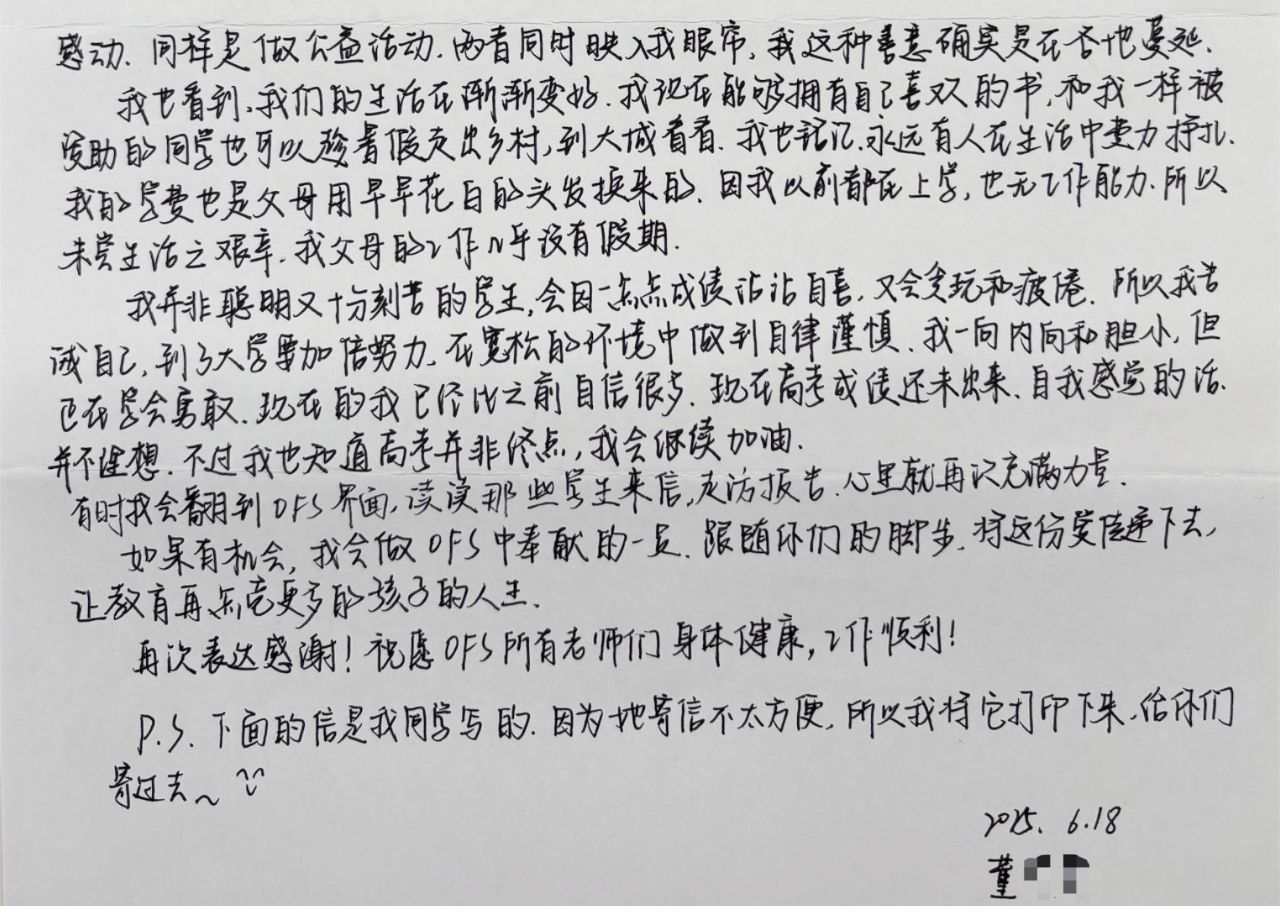 感动.同样是做公益活动.两者同时映入我眼帘,我这种善意确实是在各地蔓延.
我也看到,我们的生活在渐渐变好.我现在能够拥有自己喜欢的书,和我一样被
资助的同学也可以趁暑假走出乡村,到大城看看.我也铭记.永远有人在生活中费力挣扎.
我的学费也是父母用早早花白的头发换来的.因我以前都在上学,也无工作能力.所以
未尝生活之艰辛.我父母的工作几乎没有假期.
我并非聪明又十分刻苦的学生,会因一点点成绩沾沾自喜,又会贪玩和疲倦.所以我告
诫自己,到了大学要加倍努力.在宽松的环境中做到自律谨慎.我一向内向和胆小,但
已在学会勇敢.现在的我已经比之前自信很多.现在高考成绩还未出来.自我感觉的话.
并不理想.不过我也知道高考并非终点,我会继续加油.
有时我会翻到OFS界面,读读那些学生来信,走访报告.心里就再次充满力量.
如果有机会,我会做OFS中奉献的一员.跟随你们的脚步.将这份爱传递下去,
让教育再点亮更多的孩子的人生.
再次表达感谢!祝愿OFS所有老师们身体健康,工作顺利!
P.S.下面的信是我同学写的.因为她寄信不太方便.所以我将它打印下来.给你们
寄过去~
2025.6.18
董